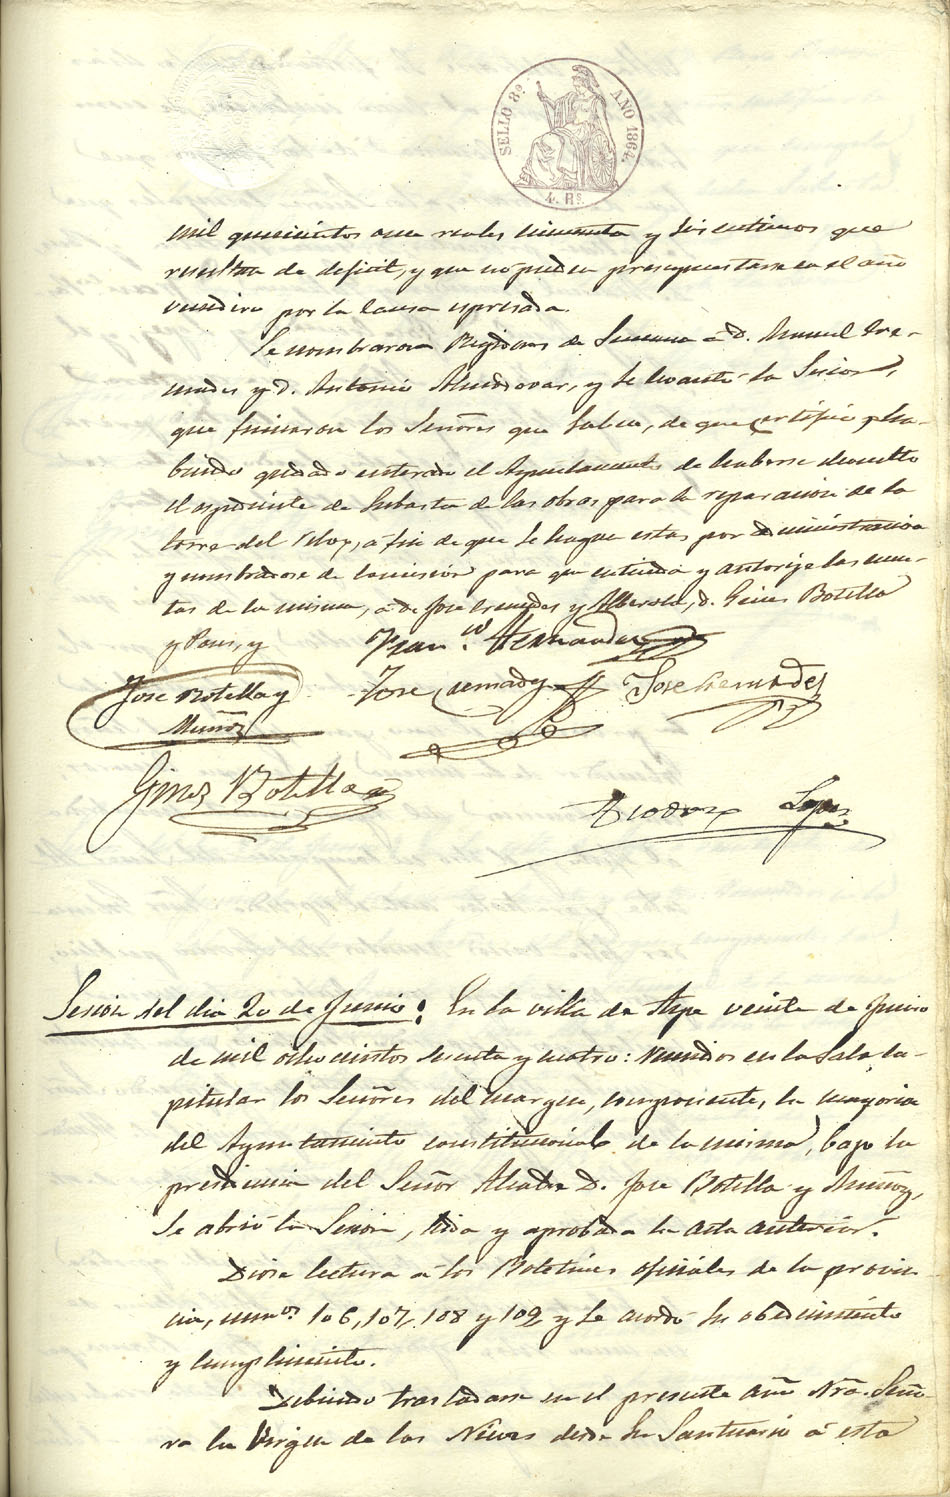 SELLO 8º AÑO 1864.
4. Rs.
mil quinientos once reales cincuenta y seis centimos que
resultan de deficit, y que no pueden presupuestarse en el año
venidero por la causa espresada.
Se nombraron Regidores de Semana á D. Manuel Cre-
mades y D. Antonio Almodovar, y se levantó la Sesion,
que firmaron los Señores que saben, de que certifico y ha-
biendo quedado enterado el Ayuntamiento de haberse devuelto
el espediente de subasta de las obras para la reparacion de la
torre del Reloj, á fin de que se hagan estas por administracion
y nombrandose de comision para que entienda y autorize las cuen-
tas de la misma, á D. Jose Cremades y Alberola, D. Gines Botella
y Pons, y
Fran.co Hernandez
Jose Botella y
Muñoz
Jose Cremades
Jose Cremades
Gines Botella
Teodoro Lopez
Sesion del dia 20 de Junio: En la villa de Aspe veinte de Junio
de mil ochocientos sesenta y cuatro: reunidos en la Sala Ca-
pitular los Señores del margen, componentes, la mayoria
del Ayuntamiento constitucional de la misma, bajo la
presidencia del Señor Alcalde D. Jose Botella y Muñoz,
se abrió la Sesion, leida y aprobada la acta anterior.
Diose lectura á los Boletines oficiales de la provin-
cia, numos 106, 107, 108 y 109 y se acordó su obedecimiento
y cumplimiento.
Debiendo trasladarse en el presente año Nra. Seño-
ra la Virgen de las Nieves desde su Santuario á esta